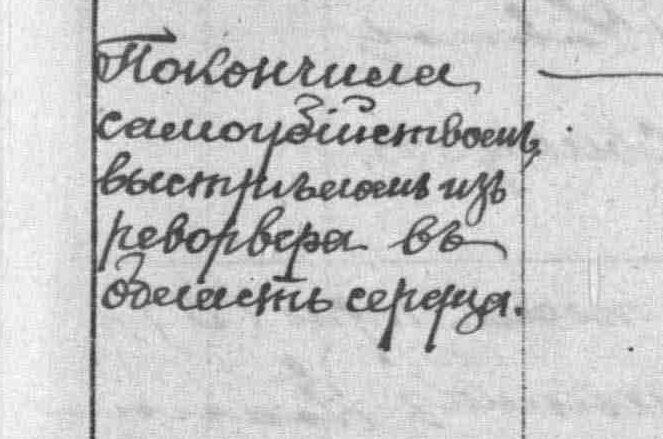 Покончила
самоубійствомъ,
выстрѣломъ изъ
реворвера въ
область сердца.